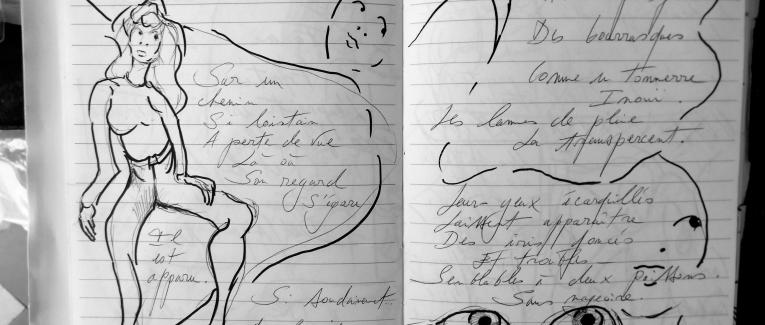 Sur un
chemin
Si lointain
A perte de vue
Là où
Son regard
S'égare
Il
est
apparu.
Si soudainement...
Des bourrasques
Comme un tonnerre
Inouï.
Les lames de pluie
La transpercent.
Leurs yeux écarquillés
Laissent apparaître
Des iris foncés
Et troubles
Semblables à deux poissons.
Sans nageoire.